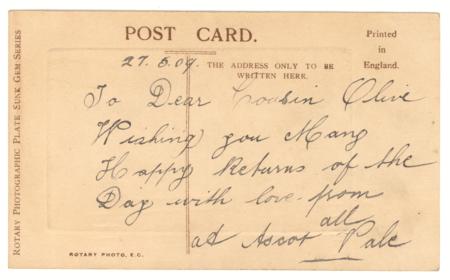 POST CARD.
Printed
in
England.
27.5.09.
THE ADDRESS ONLY TO BE
WRITTEN HERE.
To Dear Cousin Olive
Wishing you Many
Happy Returns of the
Day with love from
all
at Ascot Vale
ROTARY PHOTO, E.C.
ROTARY PHOTOGRAPHIC PLATE SUNK GEM SERIES